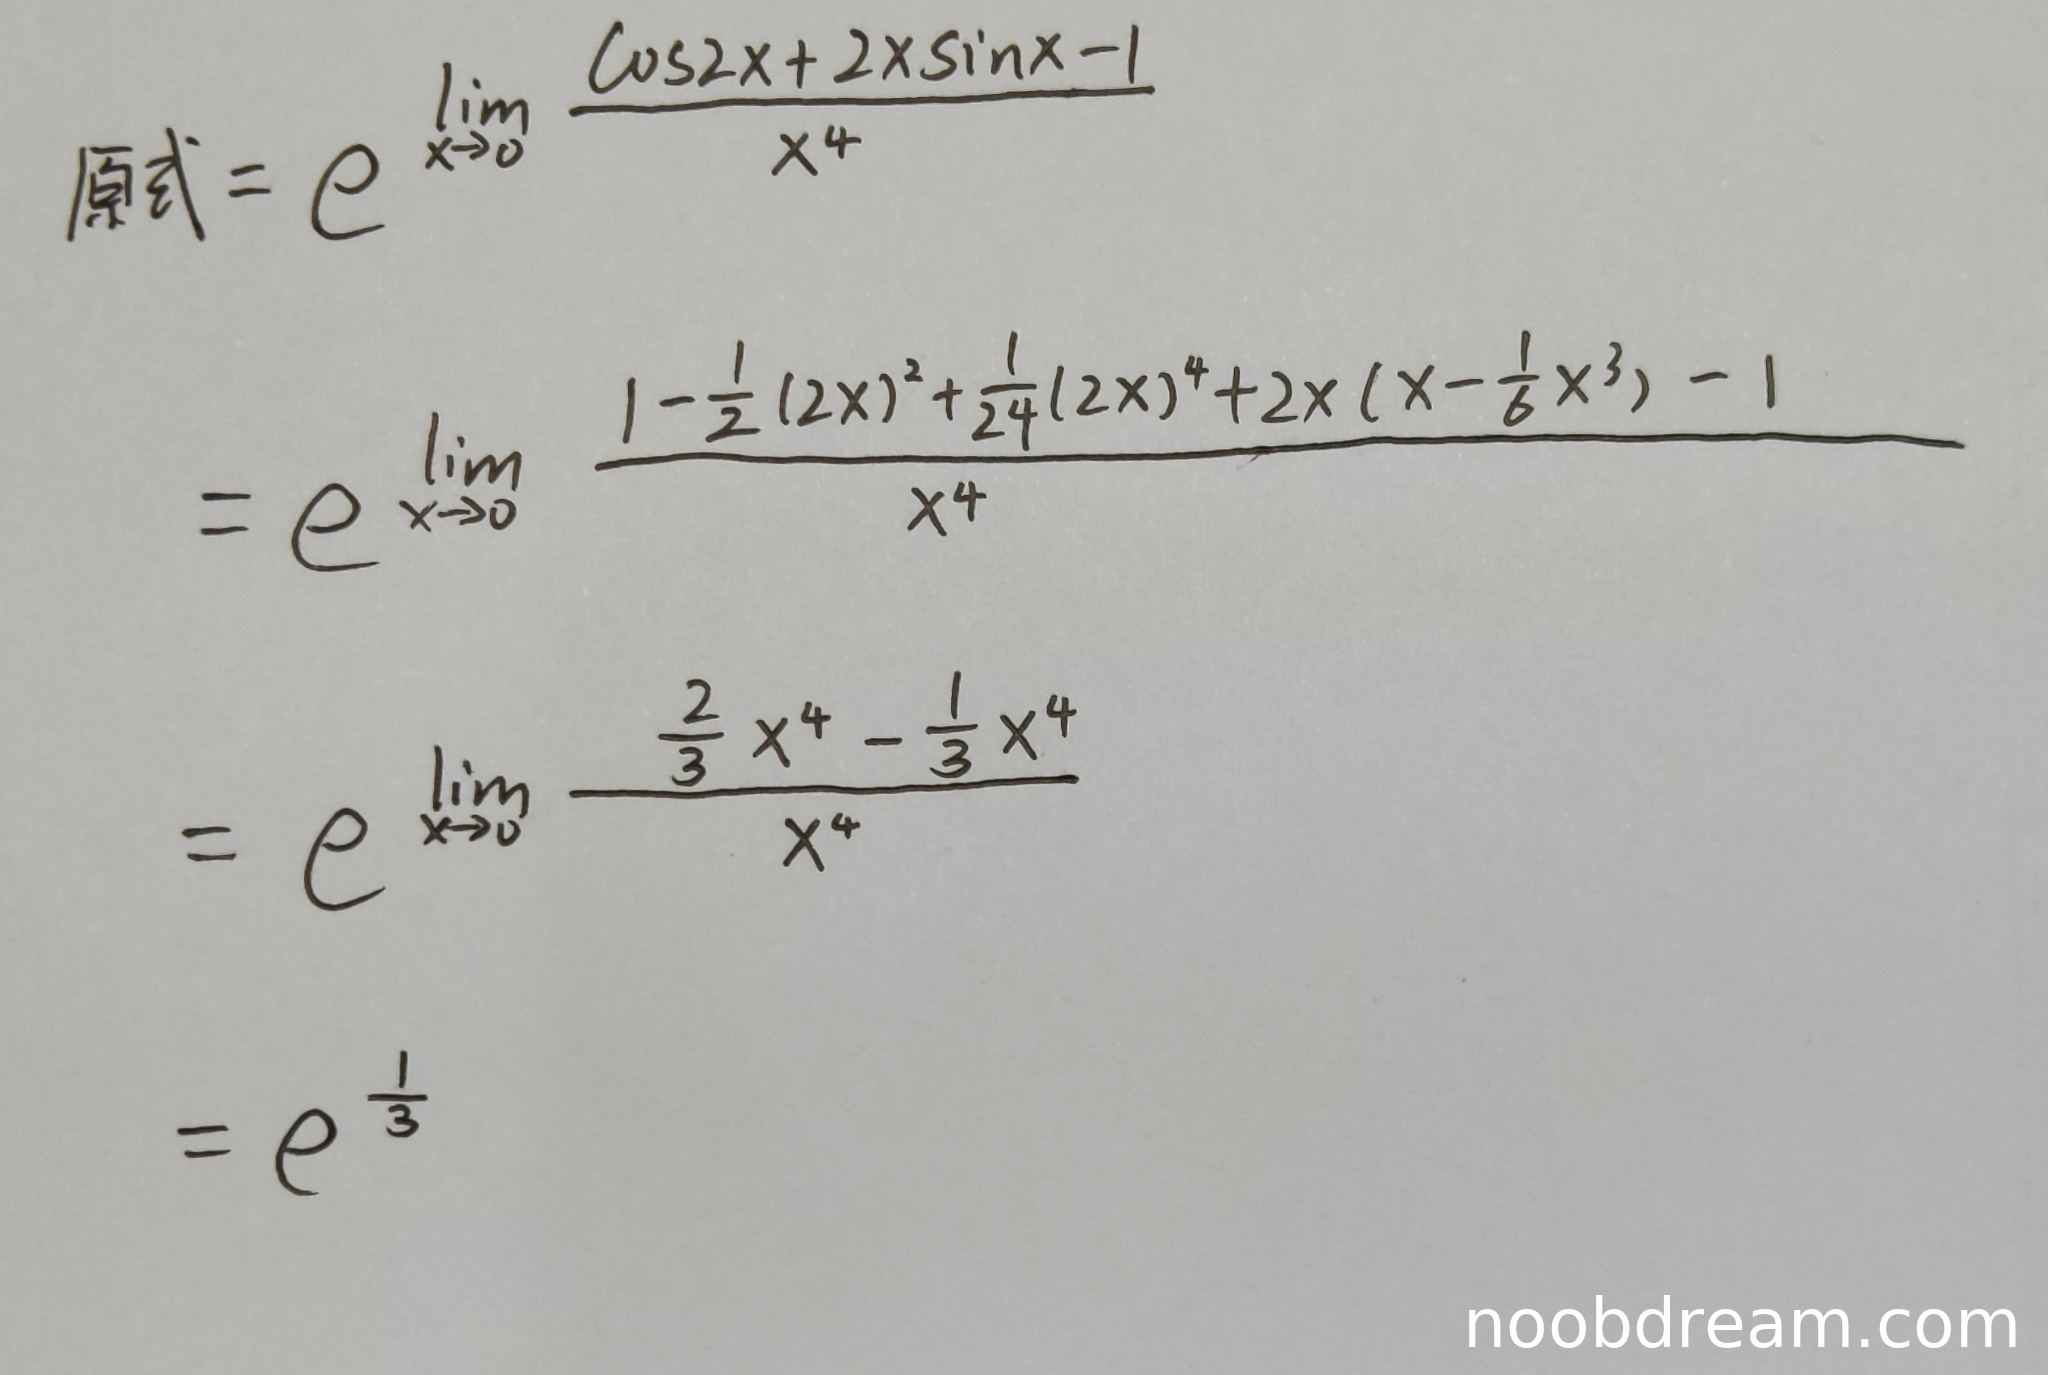 原式 = e^{lim_{x→0} \frac{cos2x+2xsinx-1}{x^4}}
= e^{lim_{x→0} \frac{1-\frac{1}{2}(2x)^2+\frac{1}{24}(2x)^4+2x(x-\frac{1}{6}x^3)-1}{x^4}}
= e^{lim_{x→0} \frac{\frac{2}{3}x^4-\frac{1}{3}x^4}{x^4}}
= e^{\frac{1}{3}}
noobdream.com